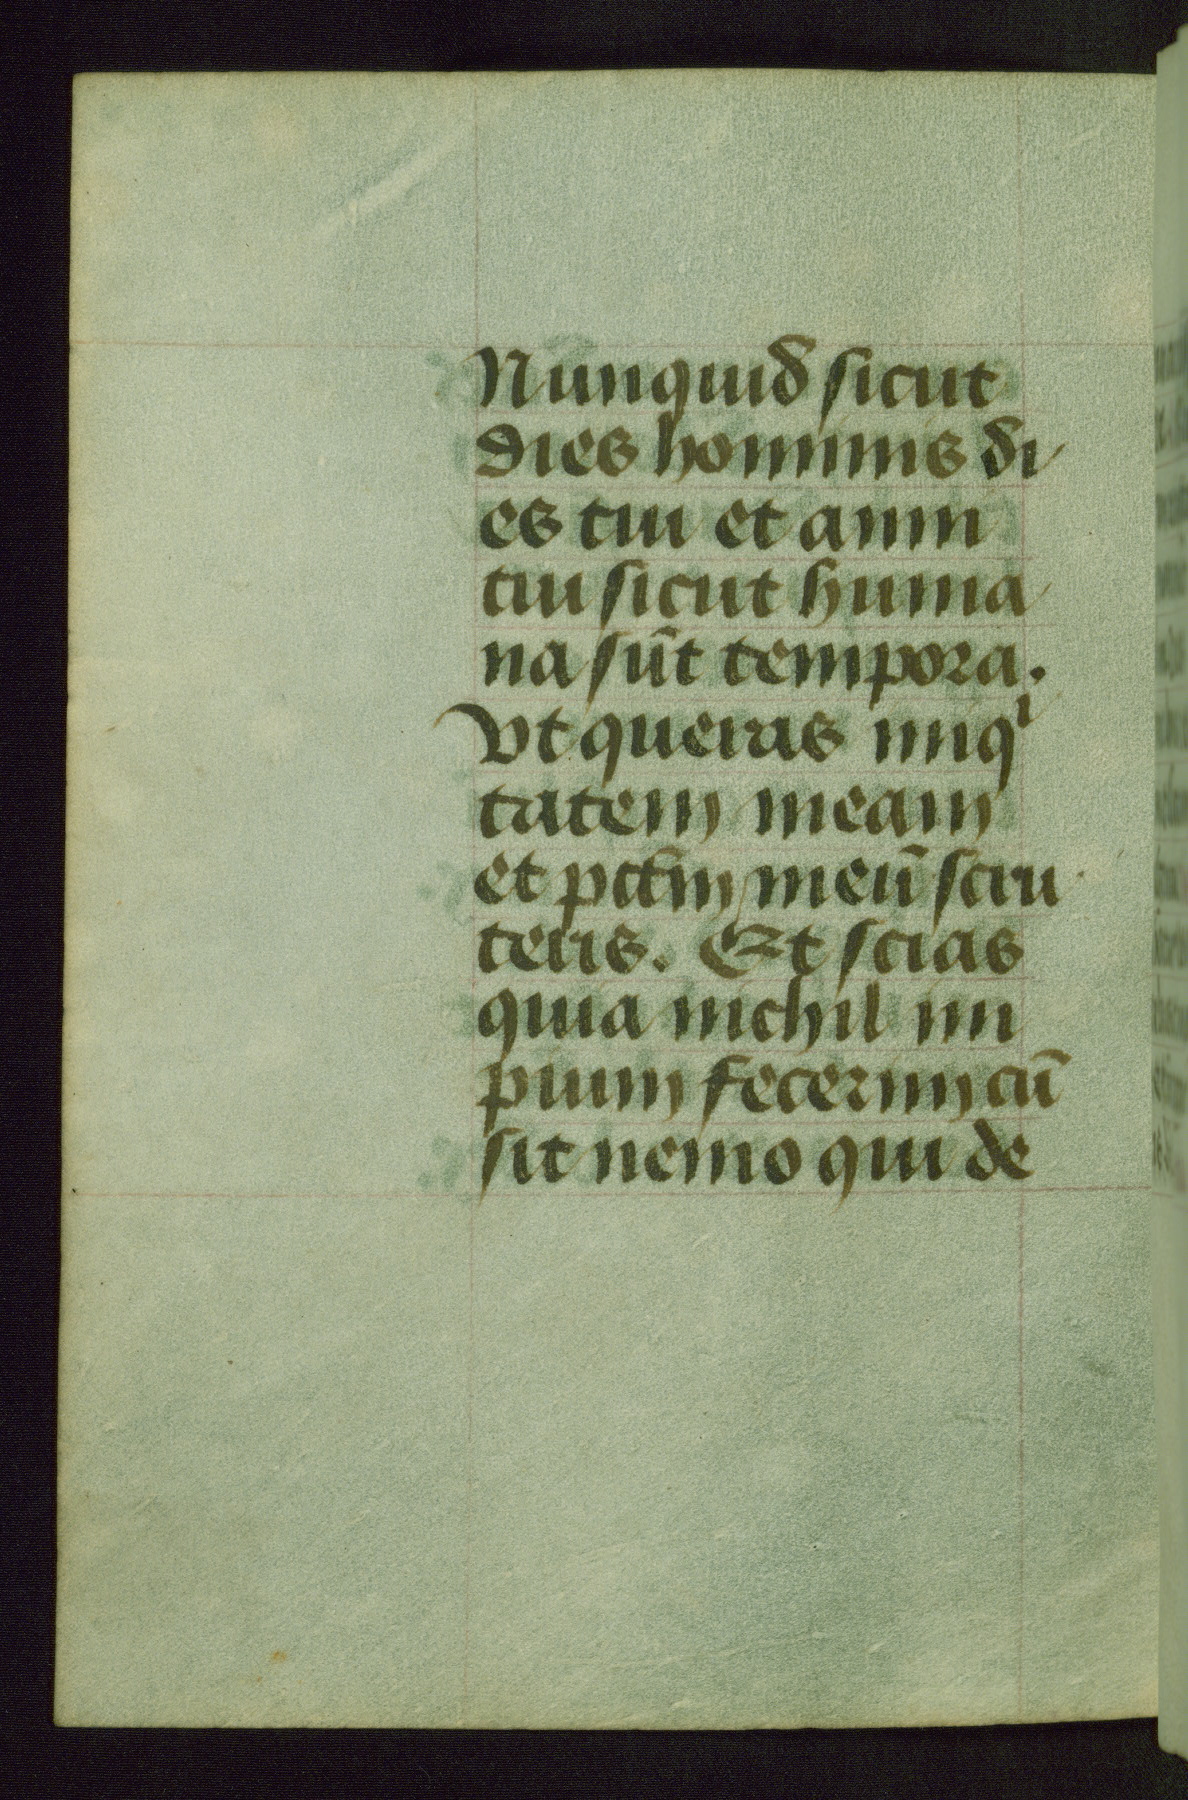 Nunquid sicut
dies hominis di
es tui et anni
tui sicut huma
na sūt tempora.
Vt queras iniqⁱ
tatem meam
et pctm̄ meū scru
teris. Et scias
quia nichil im
pium fecerim cū
sit nemo qui de